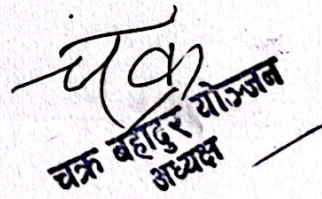 चक्र
चक्र बहादुर योञ्जन
अध्यक्ष